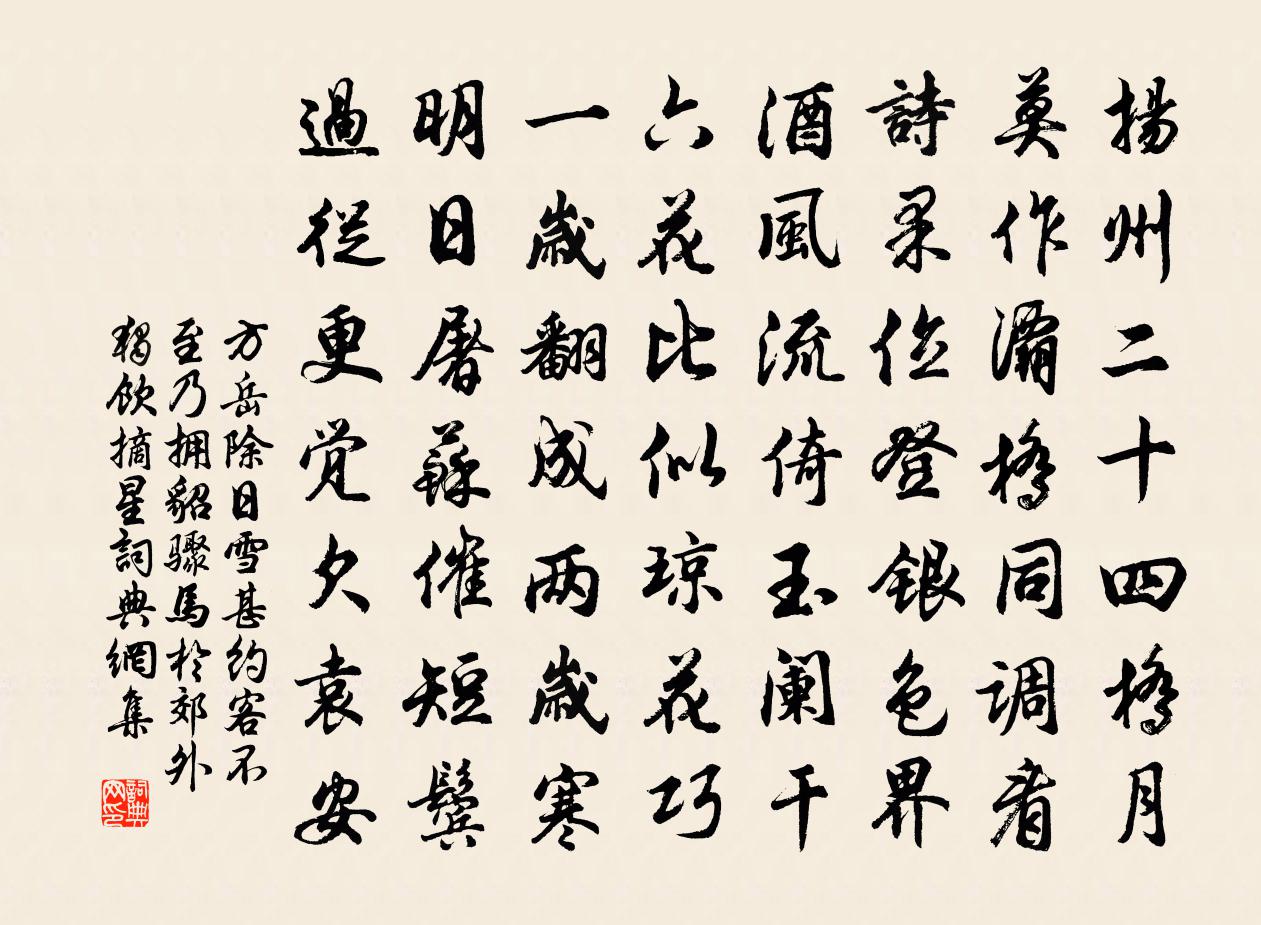 揚州二十四橋月
莫作灞橋同调看
詩果位登銀色界
酒風流倚玉阑干
六花比似琼花巧
一歲翻成两歲寒
明日屠蘇催短鬢
過從更觉欠袁安
方岳除日雪甚約客不
至乃拥貂驟馬於郊外
獨飲摘星詞典網集
詞典
网印